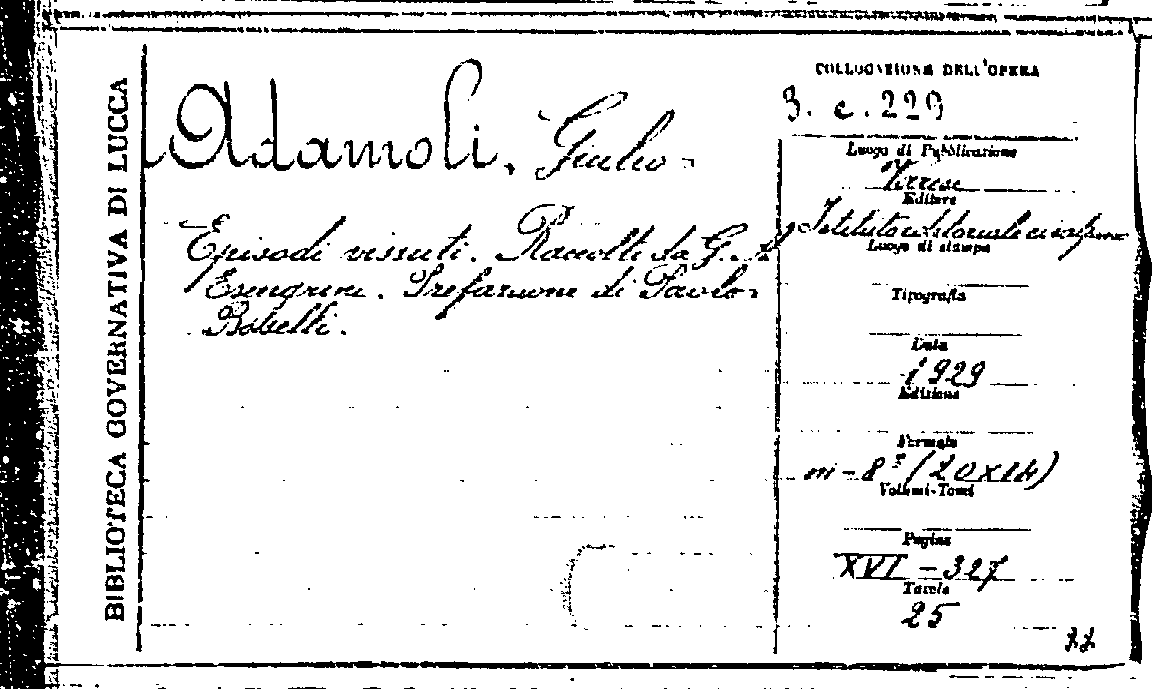 BIBLIOTECA GOVERNATIVA DI LUCCA
Adamoli, Giulio
Episodi vissuti. Raccolti da G. A.
Esengrini. Prefazione di Paolo
Bobelli.
COLLOCAZIONE DELL'OPERA
3. c. 229
Luogo di Pubblicazione
Varese
Editore
Istituto editoriale cisalpino
Luogo di stampa
Tipografia
Data
1929
Edizione
Formato
in-8° (20x14)
Volumi-Tomi
Pagine
XVI - 327
Tavole
25